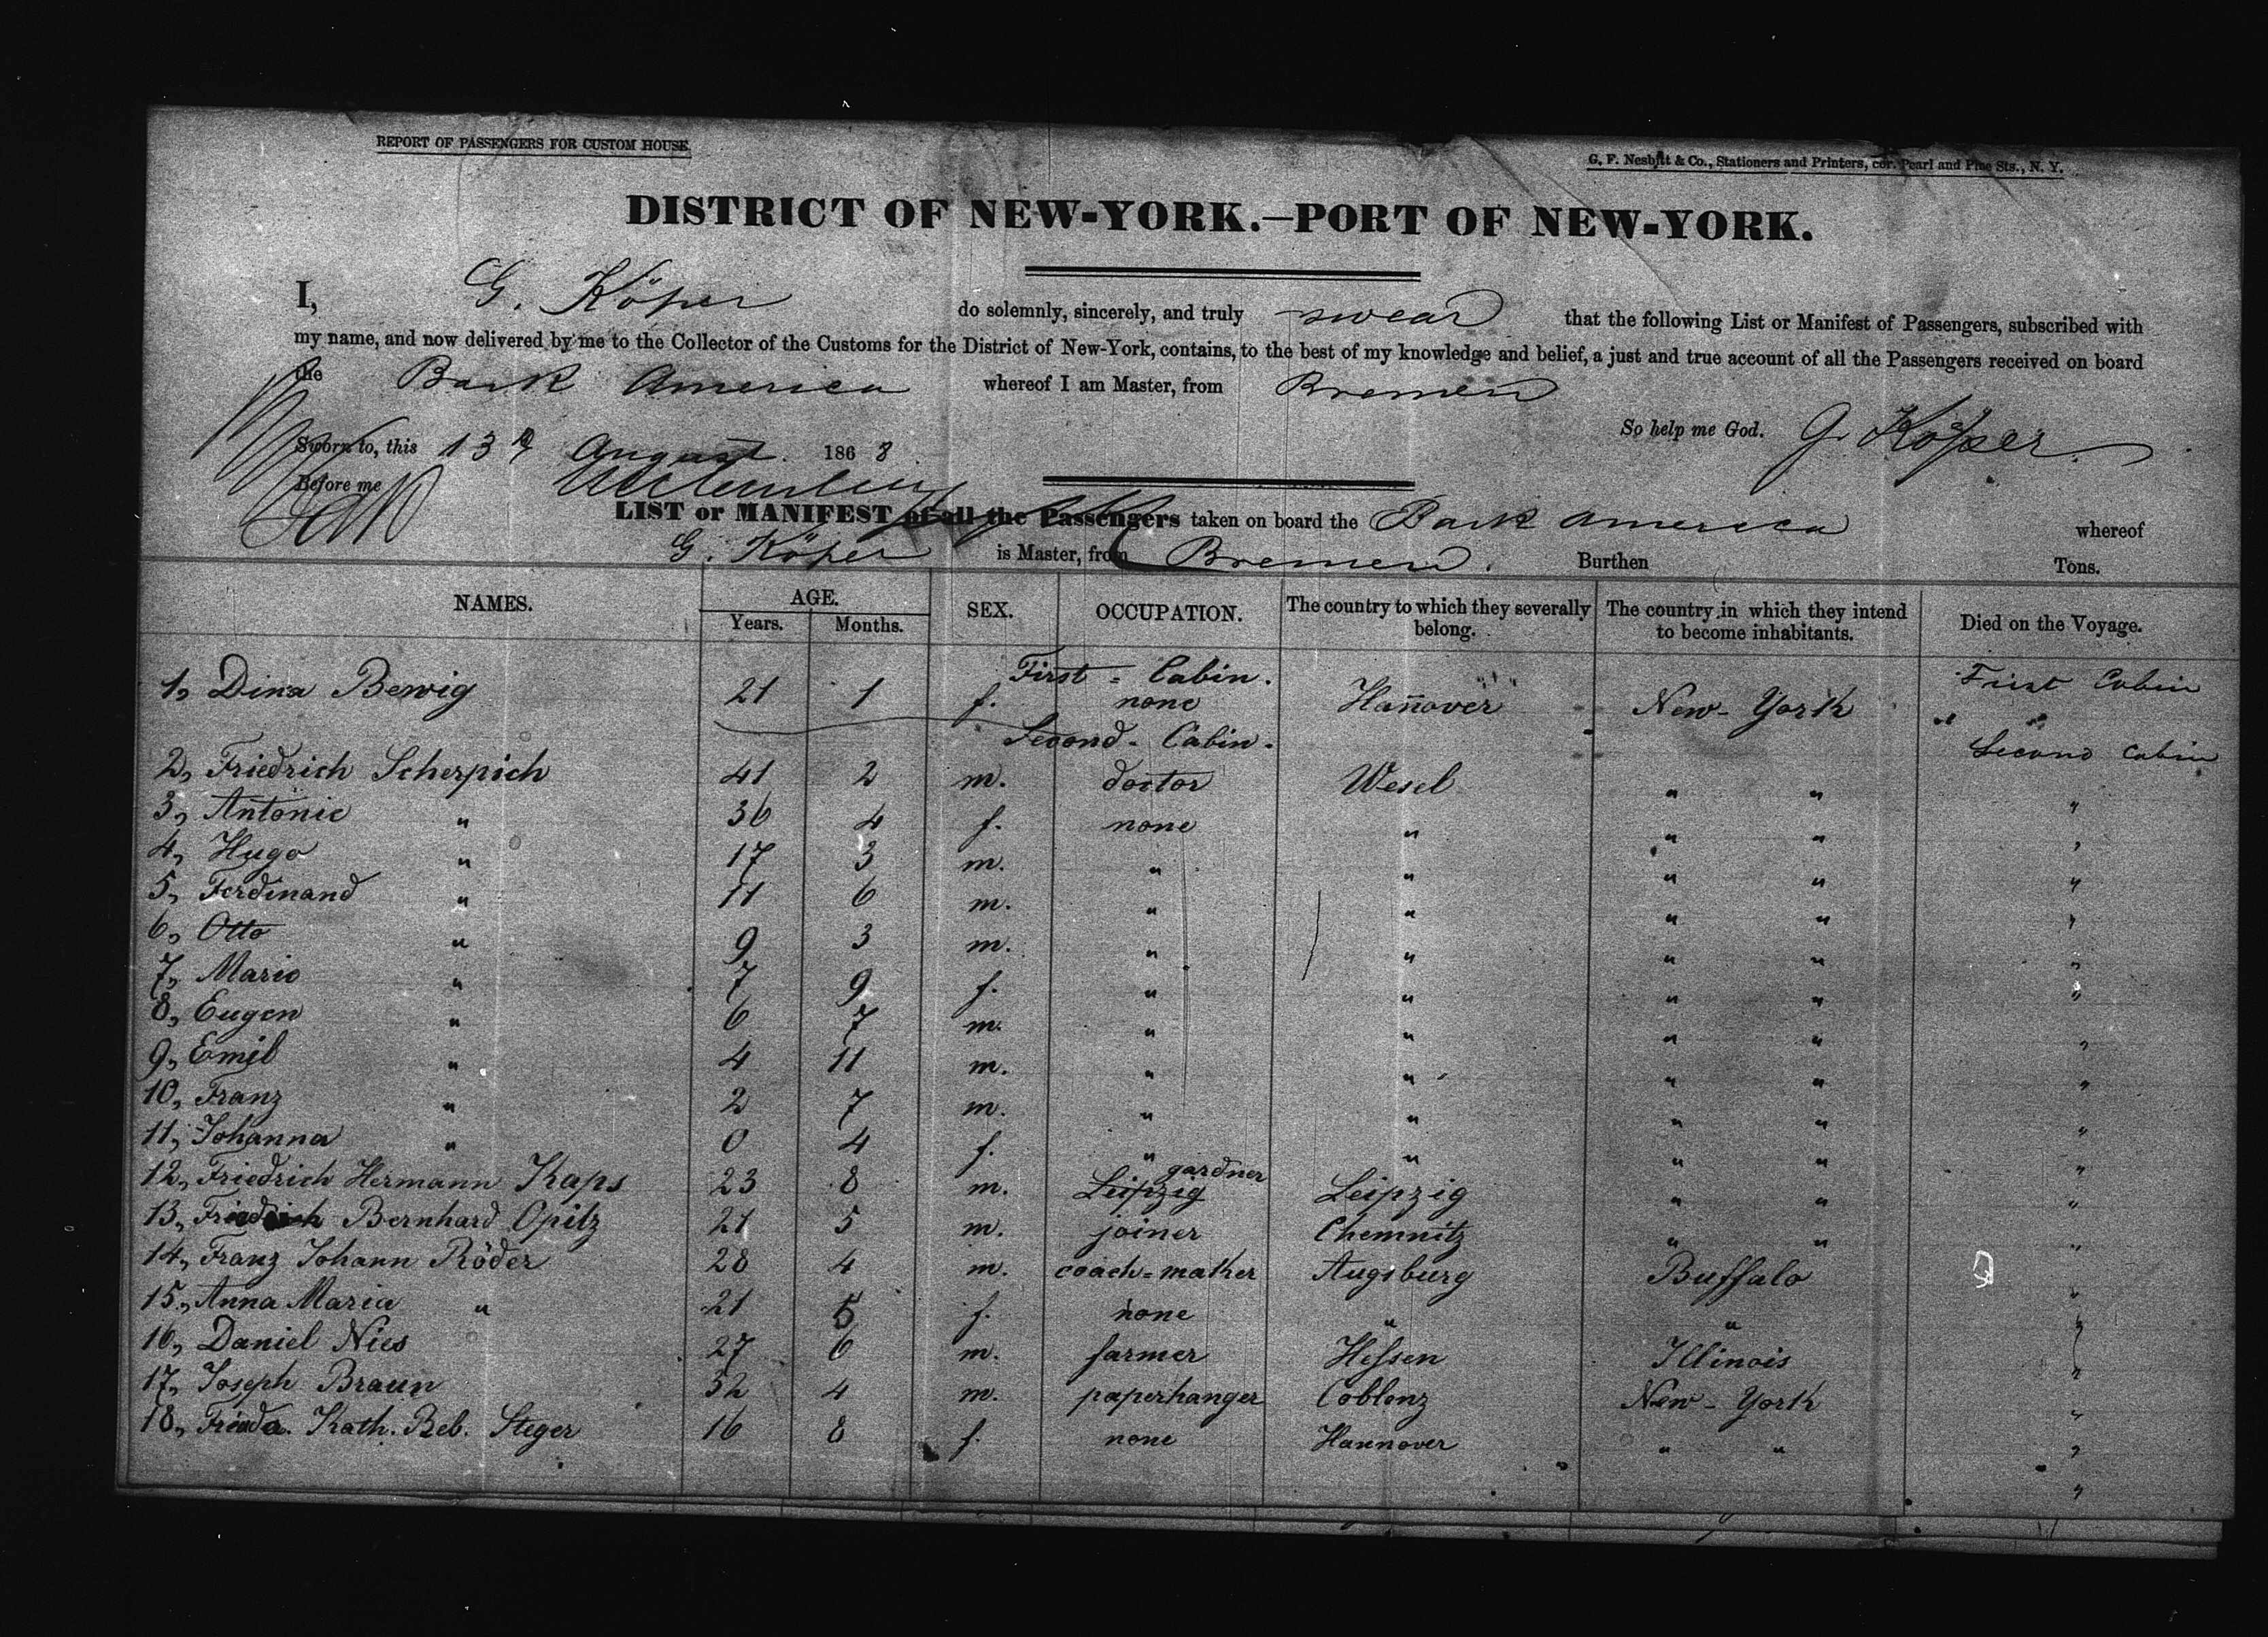 REPORT OF PASSENGERS FOR CUSTOM HOUSE.
G. F. Nesbitt & Co., Stationers and Printers, cor. Pearl and Pine Sts., N. Y.
DISTRICT OF NEW-YORK.—PORT OF NEW-YORK.
I, G. Köper do solemnly, sincerely, and truly swear that the following List or Manifest of Passengers, subscribed with
my name, and now delivered by me to the Collector of the Customs for the District of New-York, contains, to the best of my knowledge and belief, a just and true account of all the Passengers received on board
the Bark America whereof I am Master, from Bremen
So help me God. G. Köper
Sworn to, this 13 August 1868
Before me
LIST or MANIFEST of all the Passengers taken on board the Bark America whereof
G. Köper is Master, from Bremen. Burthen Tons.
NAMES. AGE. Years. Months. SEX. OCCUPATION. The country to which they severally belong. The country in which they intend to become inhabitants. Died on the Voyage.
First = Cabin. First Cabin
1, Dina Bewig 21 1 f. none Hannover New-York "
Second - Cabin. Second Cabin
2, Friedrich Scherpich 41 2 m. doctor Wesel " " "
3, Antonie " 36 4 f. none " " " "
4, Hugo " 17 3 m. " " " " "
5, Ferdinand " 11 6 m. " " " " "
6, Otto " 9 3 m. " " " " "
7, Marie " 7 9 f. " " " " "
8, Eugen " 6 7 m. " " " " "
9, Emil " 4 11 m. " " " " "
10, Franz " 2 7 m. " " " " "
11, Johanna " 0 4 f. " " " " "
12, Friedrich Hermann Kaps 23 8 m. Leipzig gardner Leipzig " " "
13, Friedrich Bernhard Opitz 21 5 m. joiner Chemnitz " " "
14, Franz Johann Röder 28 4 m. coach=maker Augsburg Buffalo "
15, Anna Maria " 21 5 f. none " " "
16, Daniel Nies 27 6 m. farmer Hessen Illinois "
17, Joseph Braun 32 4 m. paperhanger Coblenz New-York "
18, Frieda. Kath. Beb. Steger 16 8 f. none Hannover " " "